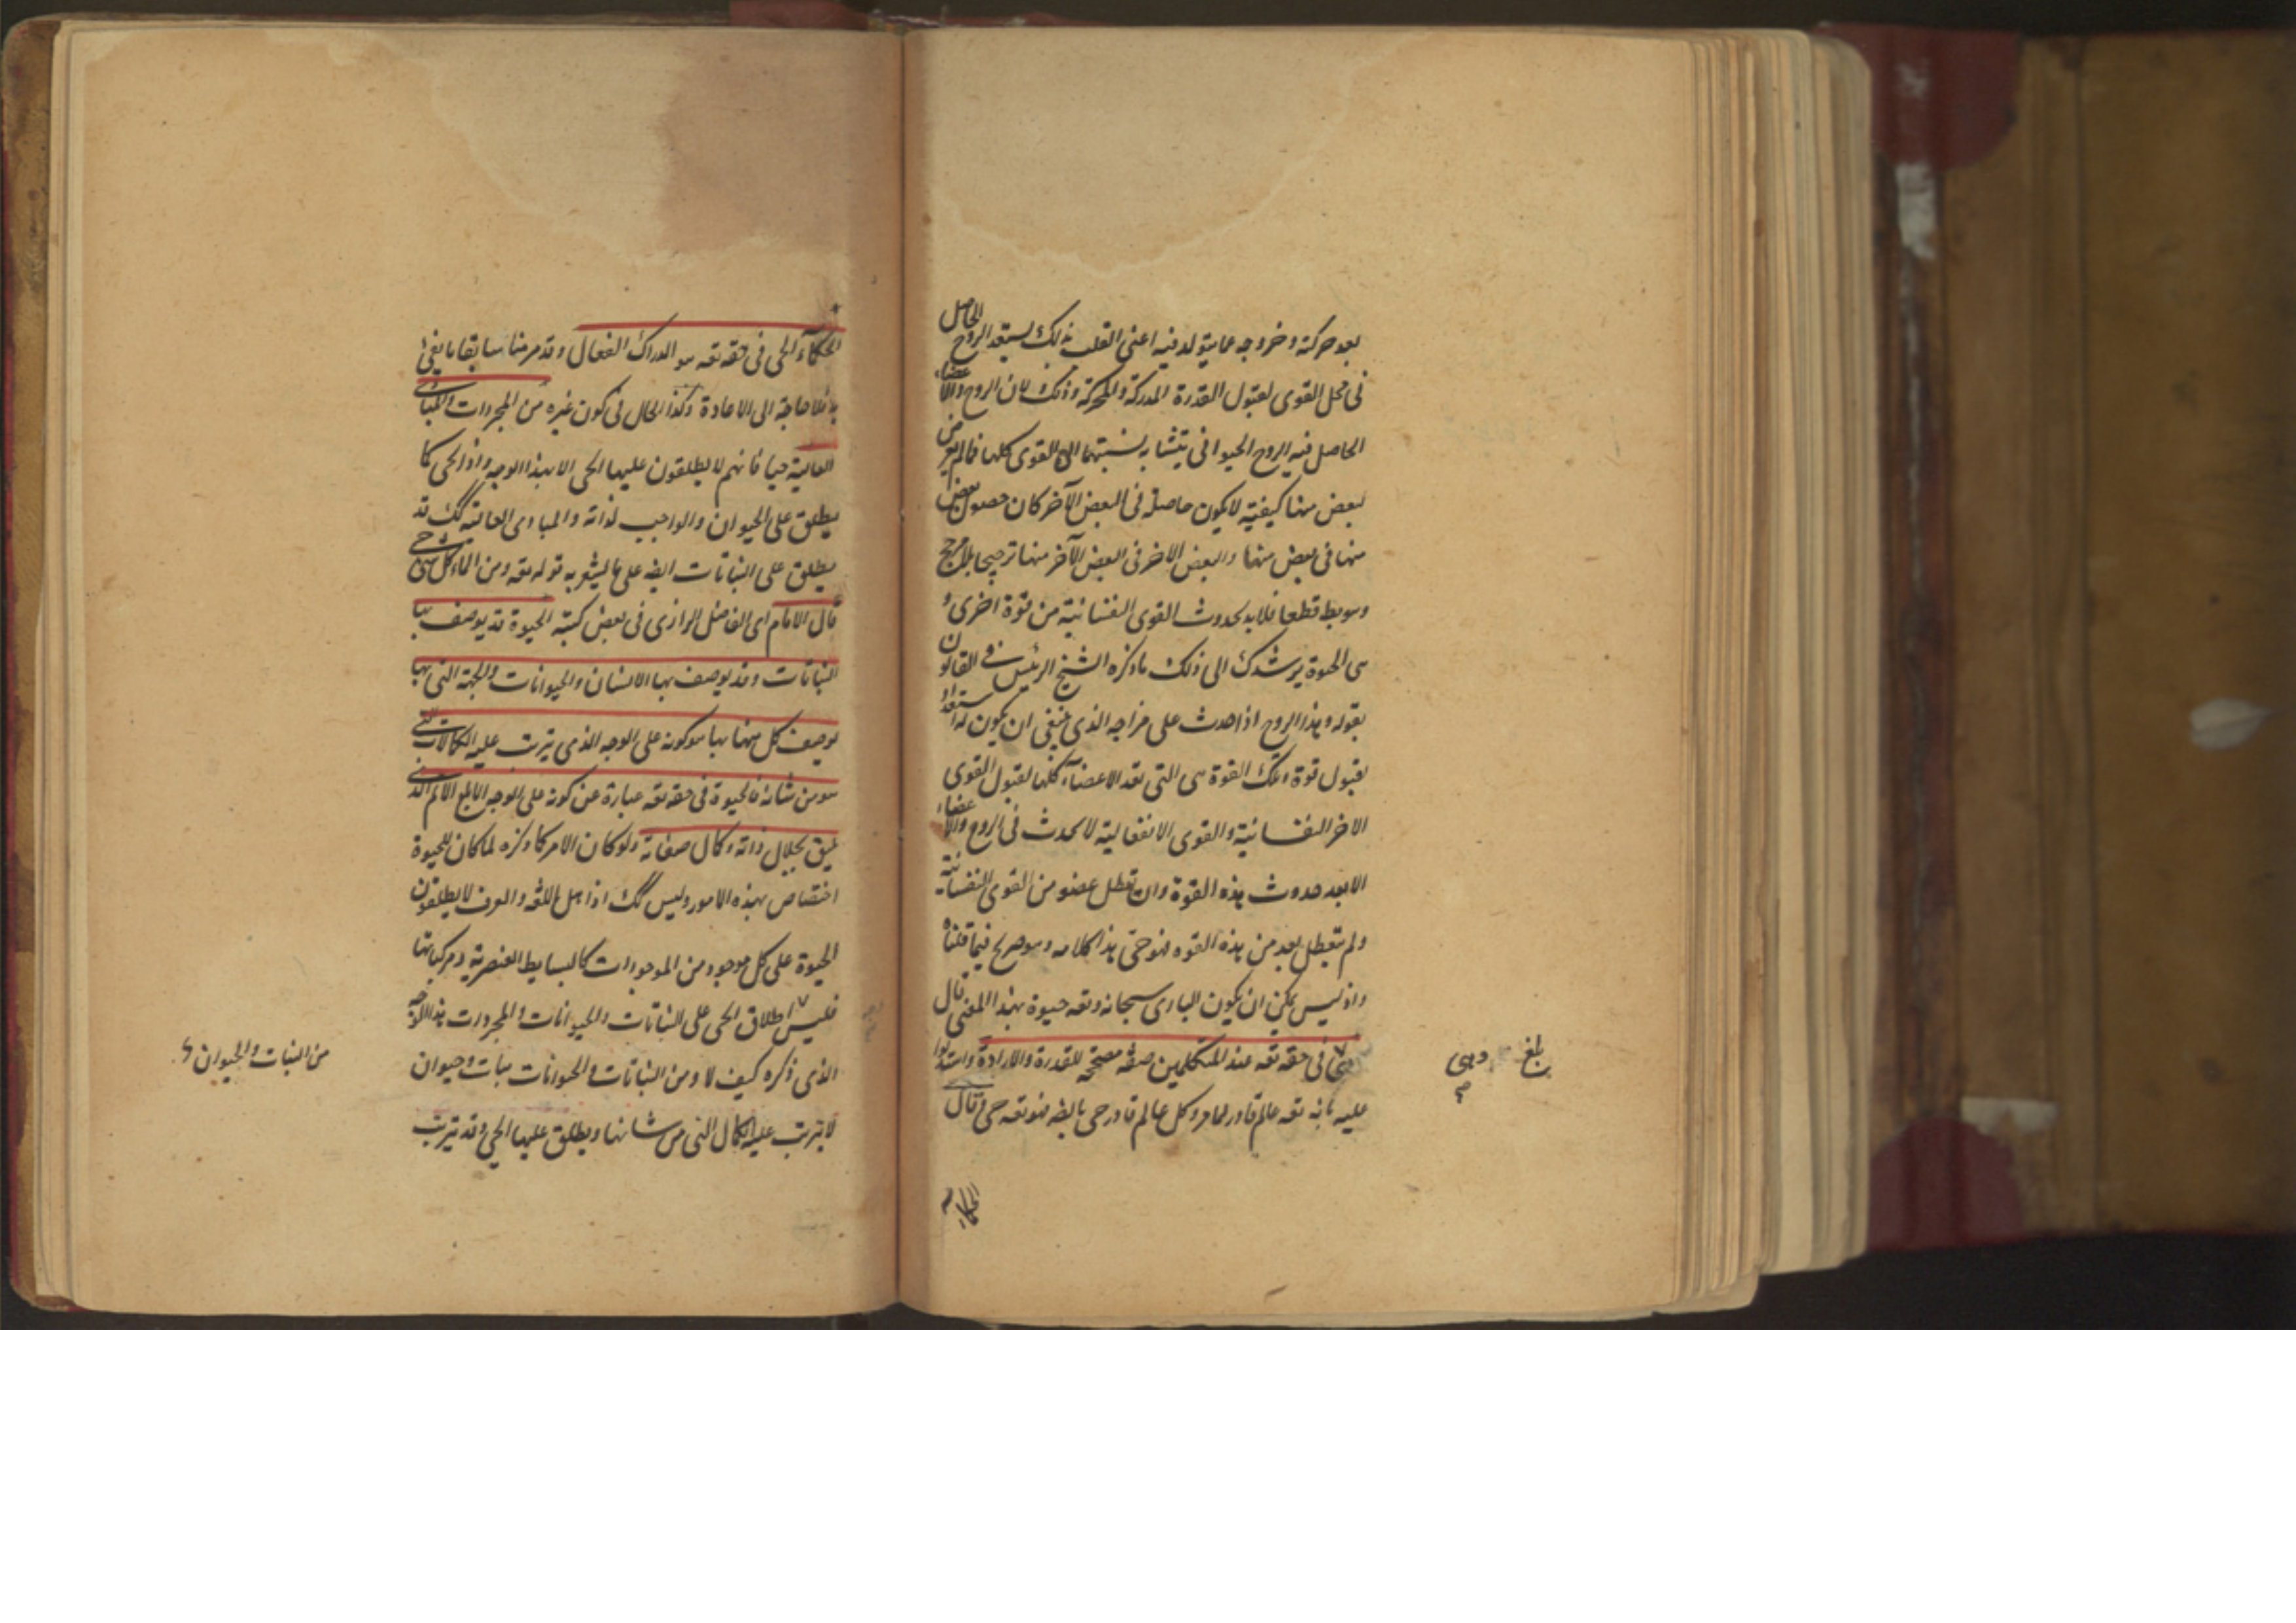 بعد حركته وخروجه عما يتولد فيه اعنى القلب بذلك يستعد الروح الحاصل
فى محل القوى لقبول القدرة المدركة والمحركة وذلك لان الروح والاعضاء
الحاصل فيه الروح الحيوانى يتشابه نسبتهما الى القوى كلها فما لم يعرض
لبعض منها كيفية لا يكون حاصلة فى البعض الآخر كان حصول بعض
منها فى بعض منها والبعض الاخر فى البعض الآخر منها ترجيحا بلا مرجح
وهو بط قطعا فلا بد لحدوث القوى النفسانية من قوة اخرى و
هى الحيوة يرشدك الى ذلك ما ذكره الشيخ الرئيس فى القانون
بقوله وهذا الروح اذا حدث على مزاجه الذى ينبغى ان يكون له استعداد
لقبول قوة وتلك القوة هى التى تعد الاعضآء كلها لقبول القوى
الاخر النفسانية والقوى الانفعالية لا تحدث فى الروح والاعضاء
الا بعد حدوث هذه القوة وان تعطل عضو من القوى النفسانية
ولم يتعطل بعد من هذه القوه فهو حى هذا كلامه وهو صريح فيما قلناه
واذ ليس يمكن ان يكون البارى سبحانه وتعه حيوة بهذا المعنى قال
وهى فى حقه تعه عند المتكلمين صفة مصححة للقدرة والارادة واستدلوا
عليه بانه تعه عالم قادر لما مر وكل عالم قادر حى بالضر فهو تعه حى وقال
بلغ
الحكماء
الحكمآء الحى فى حقه تعه هو الدراك الفعال وقد مر منا سابقا ما يفى
بهذا فلا حاجة الى الاعادة وكذا الحال فى كون غيره من المجردات والمبادى
العالية حيا فانهم لا يطلقون عليها الحى الا بهذا الوجه واذ الحى كما
يطلق على الحيوان والواجب لذاته والمبادى العالية كك قد
يطلق على النباتات ايضه على ما يشعر به قوله تعه ومن الماء كل شئ حى
قال الامام اى الفاضل الرازى فى بعض كتبه الحيوة قد يوصف بها
النباتات وقد يوصف بها الانسان والحيوانات والجهة التى بها
يوصف كل منها بها هو كونه على الوجه الذى يترتب عليه الكمالات التى
هو من شانه فالحيوة فى حقه تعه عبارة عن كونه على الوجه الابلغ الاتم الذى
يليق بجلال ذاته وكمال صفاته ولو كان الامر كما ذكره لما كان للحيوة
اختصاص بهذه الامور وليس كك اذ اهل اللغة والعرف لا يطلقون
الحيوة على كل موجود من الموجودات كالبسايط العنصرية ومركباتها
فليس اطلاق الحى على النباتات والحيوانات والمجردات بهذا الوجه
الذى ذكره كيف لا ومن النباتات والحيوانات نبات وحيوان
لا يترتب عليه الكمال التى من شانها ويطلق عليها الحى وقد يترتب
من النبات والحيوان